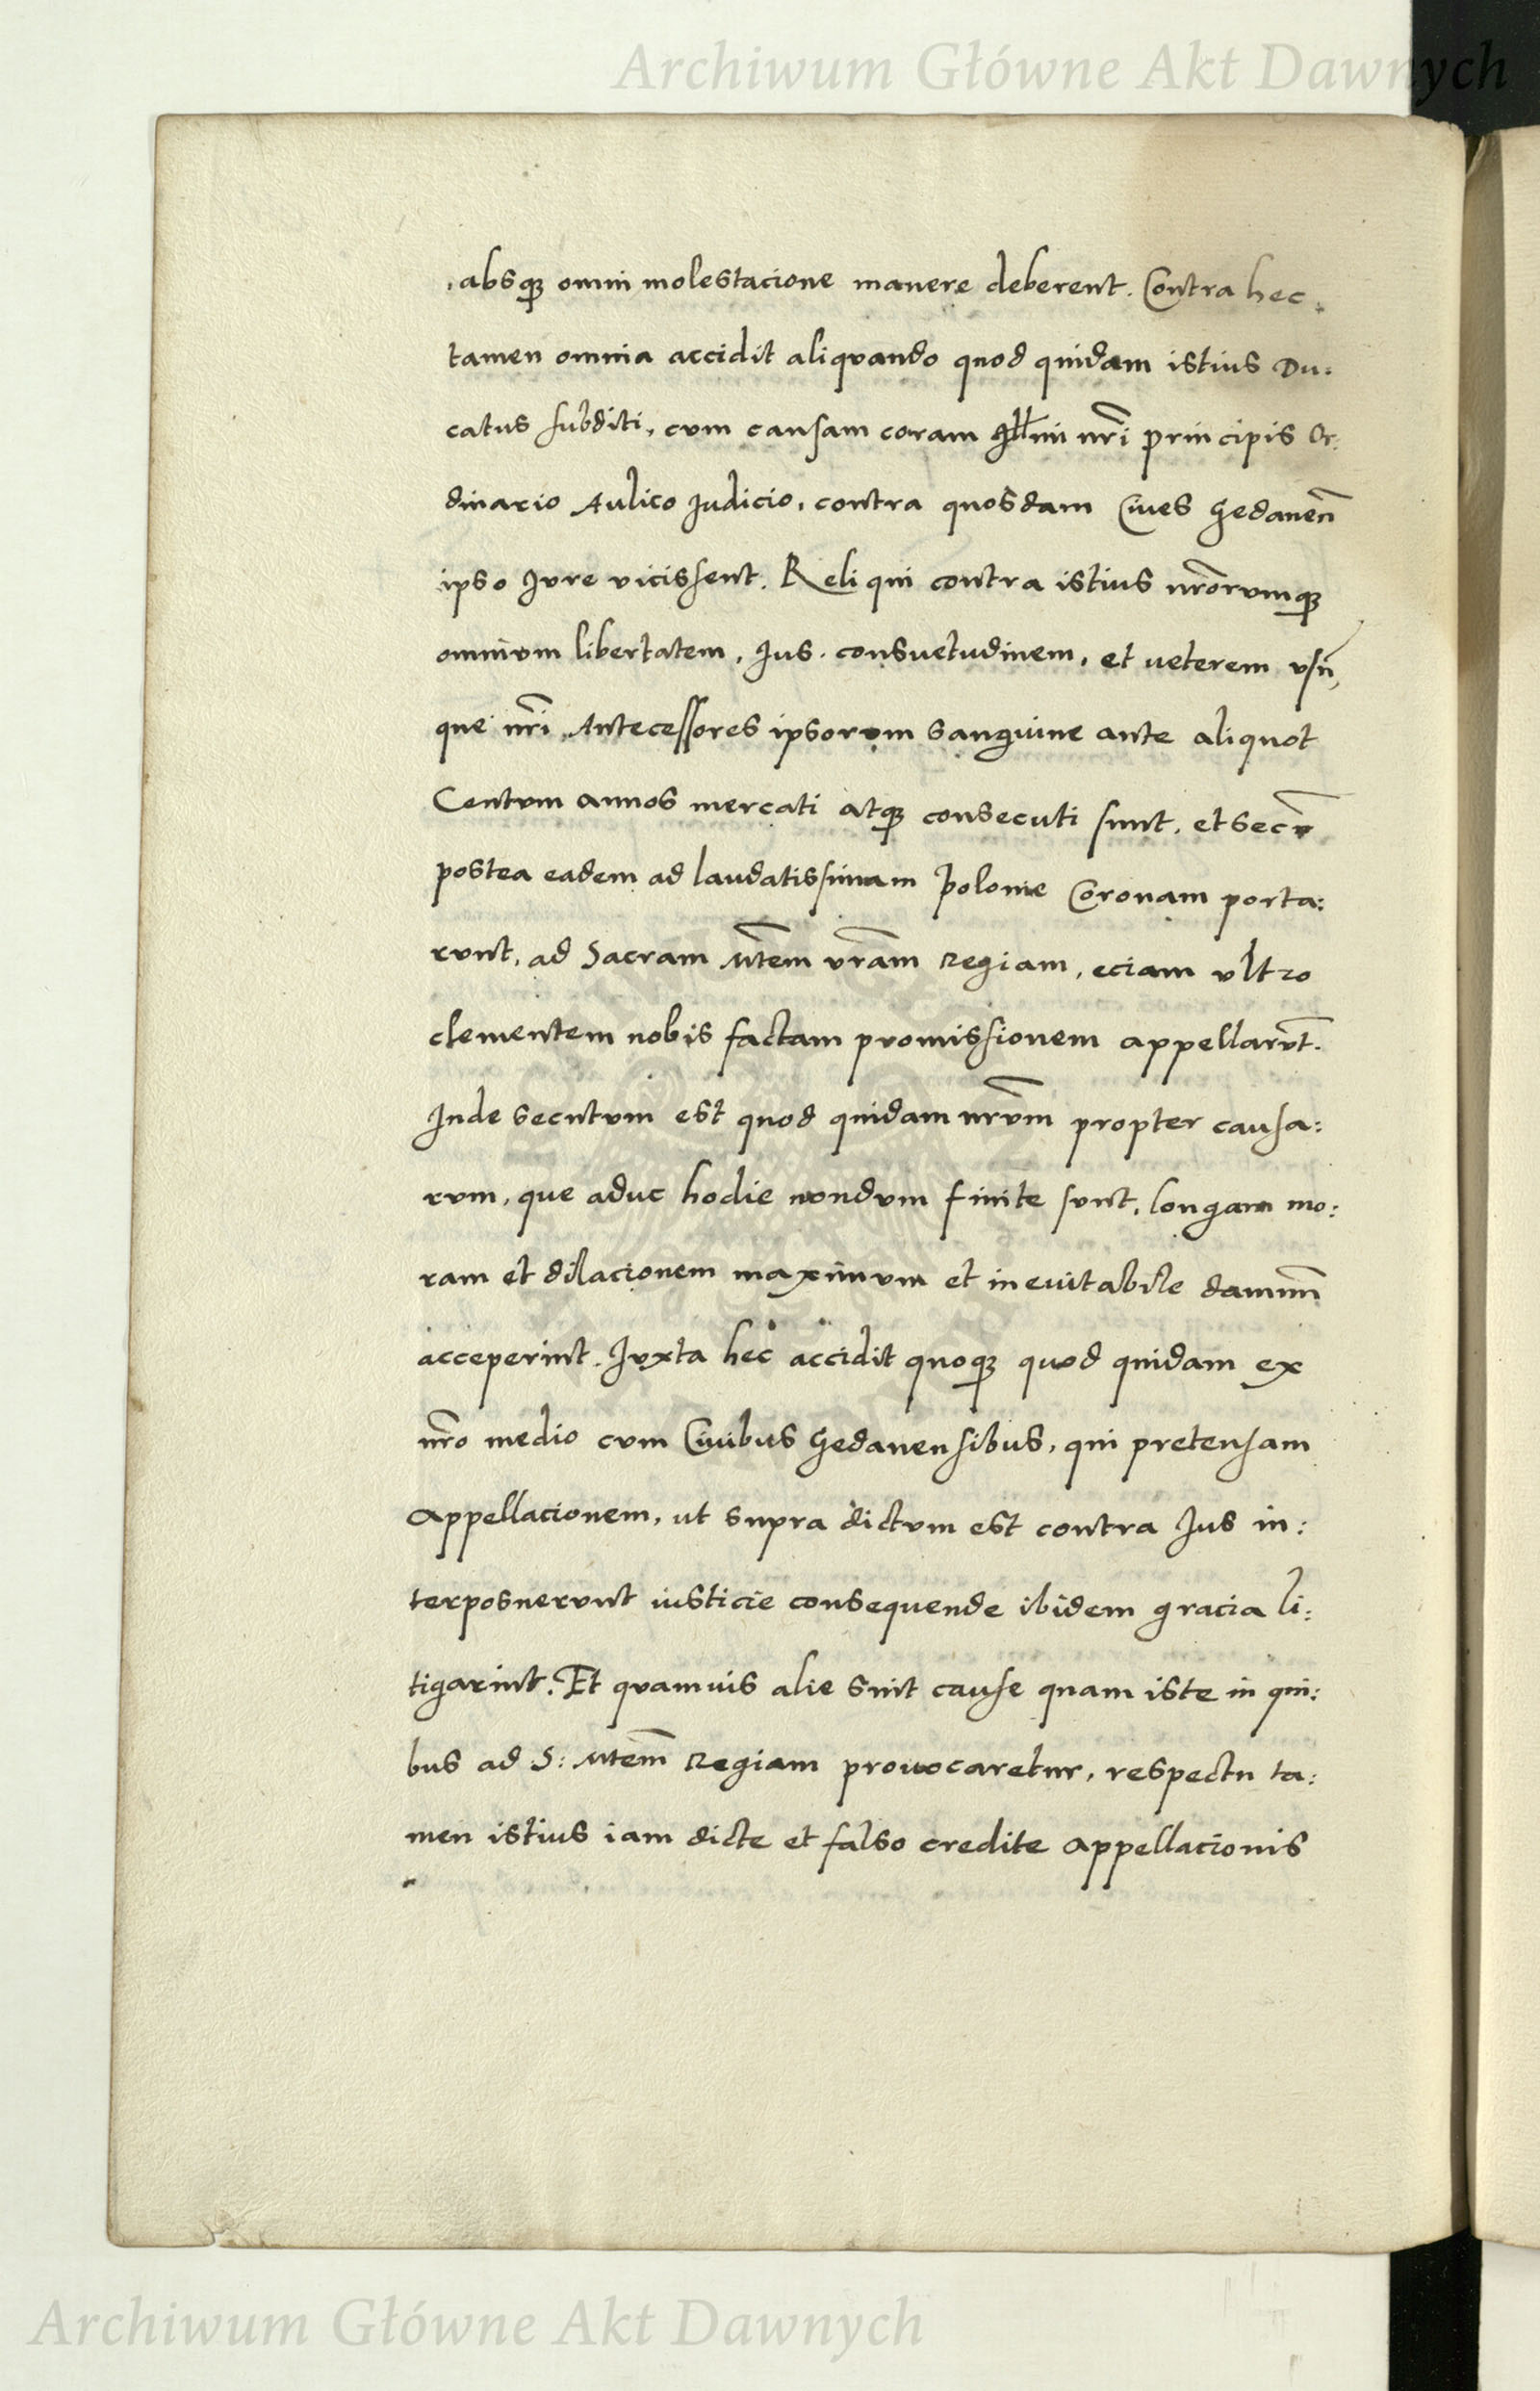 Archiwum Główne Akt Dawnych
absq₃ omni molestacione manere deberent. Contra hec
tamen omnia accidit aliquando quod quidam istius Du:
catus subditi, cum causam coram Illmi nr̄i principis Or:
dinario Aulico Iudicio, contra quosdam Ciues Gedaneñ
ipso Iure vicissent. Reliqui contra istius nr̄orumq₃
omnium libertatem, Ius, consuetudinem, et veterem vsū,
que nr̄i Antecessores ipsorum sanguine ante aliquot
Centum annos mercati atq₃ consecuti sunt, et secū
postea eadem ad laudatissimam Polonie Coronam porta:
runt, ad Sacram Mtem vr̄am Regiam, eciam vltro
clementem nobis factam promissionem appellarūt.
Inde secutum est quod quidam nr̄um propter causa:
rum, que aduc hodie nondum finite sunt, longam mo:
ram et dilacionem maximum et ineuitabile damnū
acceperint. Iuxta hec accidit quoq₃ quod quidam ex
nr̄o medio cum Ciuibus Gedanensibus, qui pretensam
Appellacionem, ut supra dictum est contra Ius in:
terposuerunt iusticie consequende ibidem gracia li:
tigarint. Et quamuis alie sint cause quam iste in qui:
bus ad S: Mtem Regiam prouocaretur, respectu ta:
men istius iam dicte et falso credite Appellacionis
Archiwum Główne Akt Dawnych